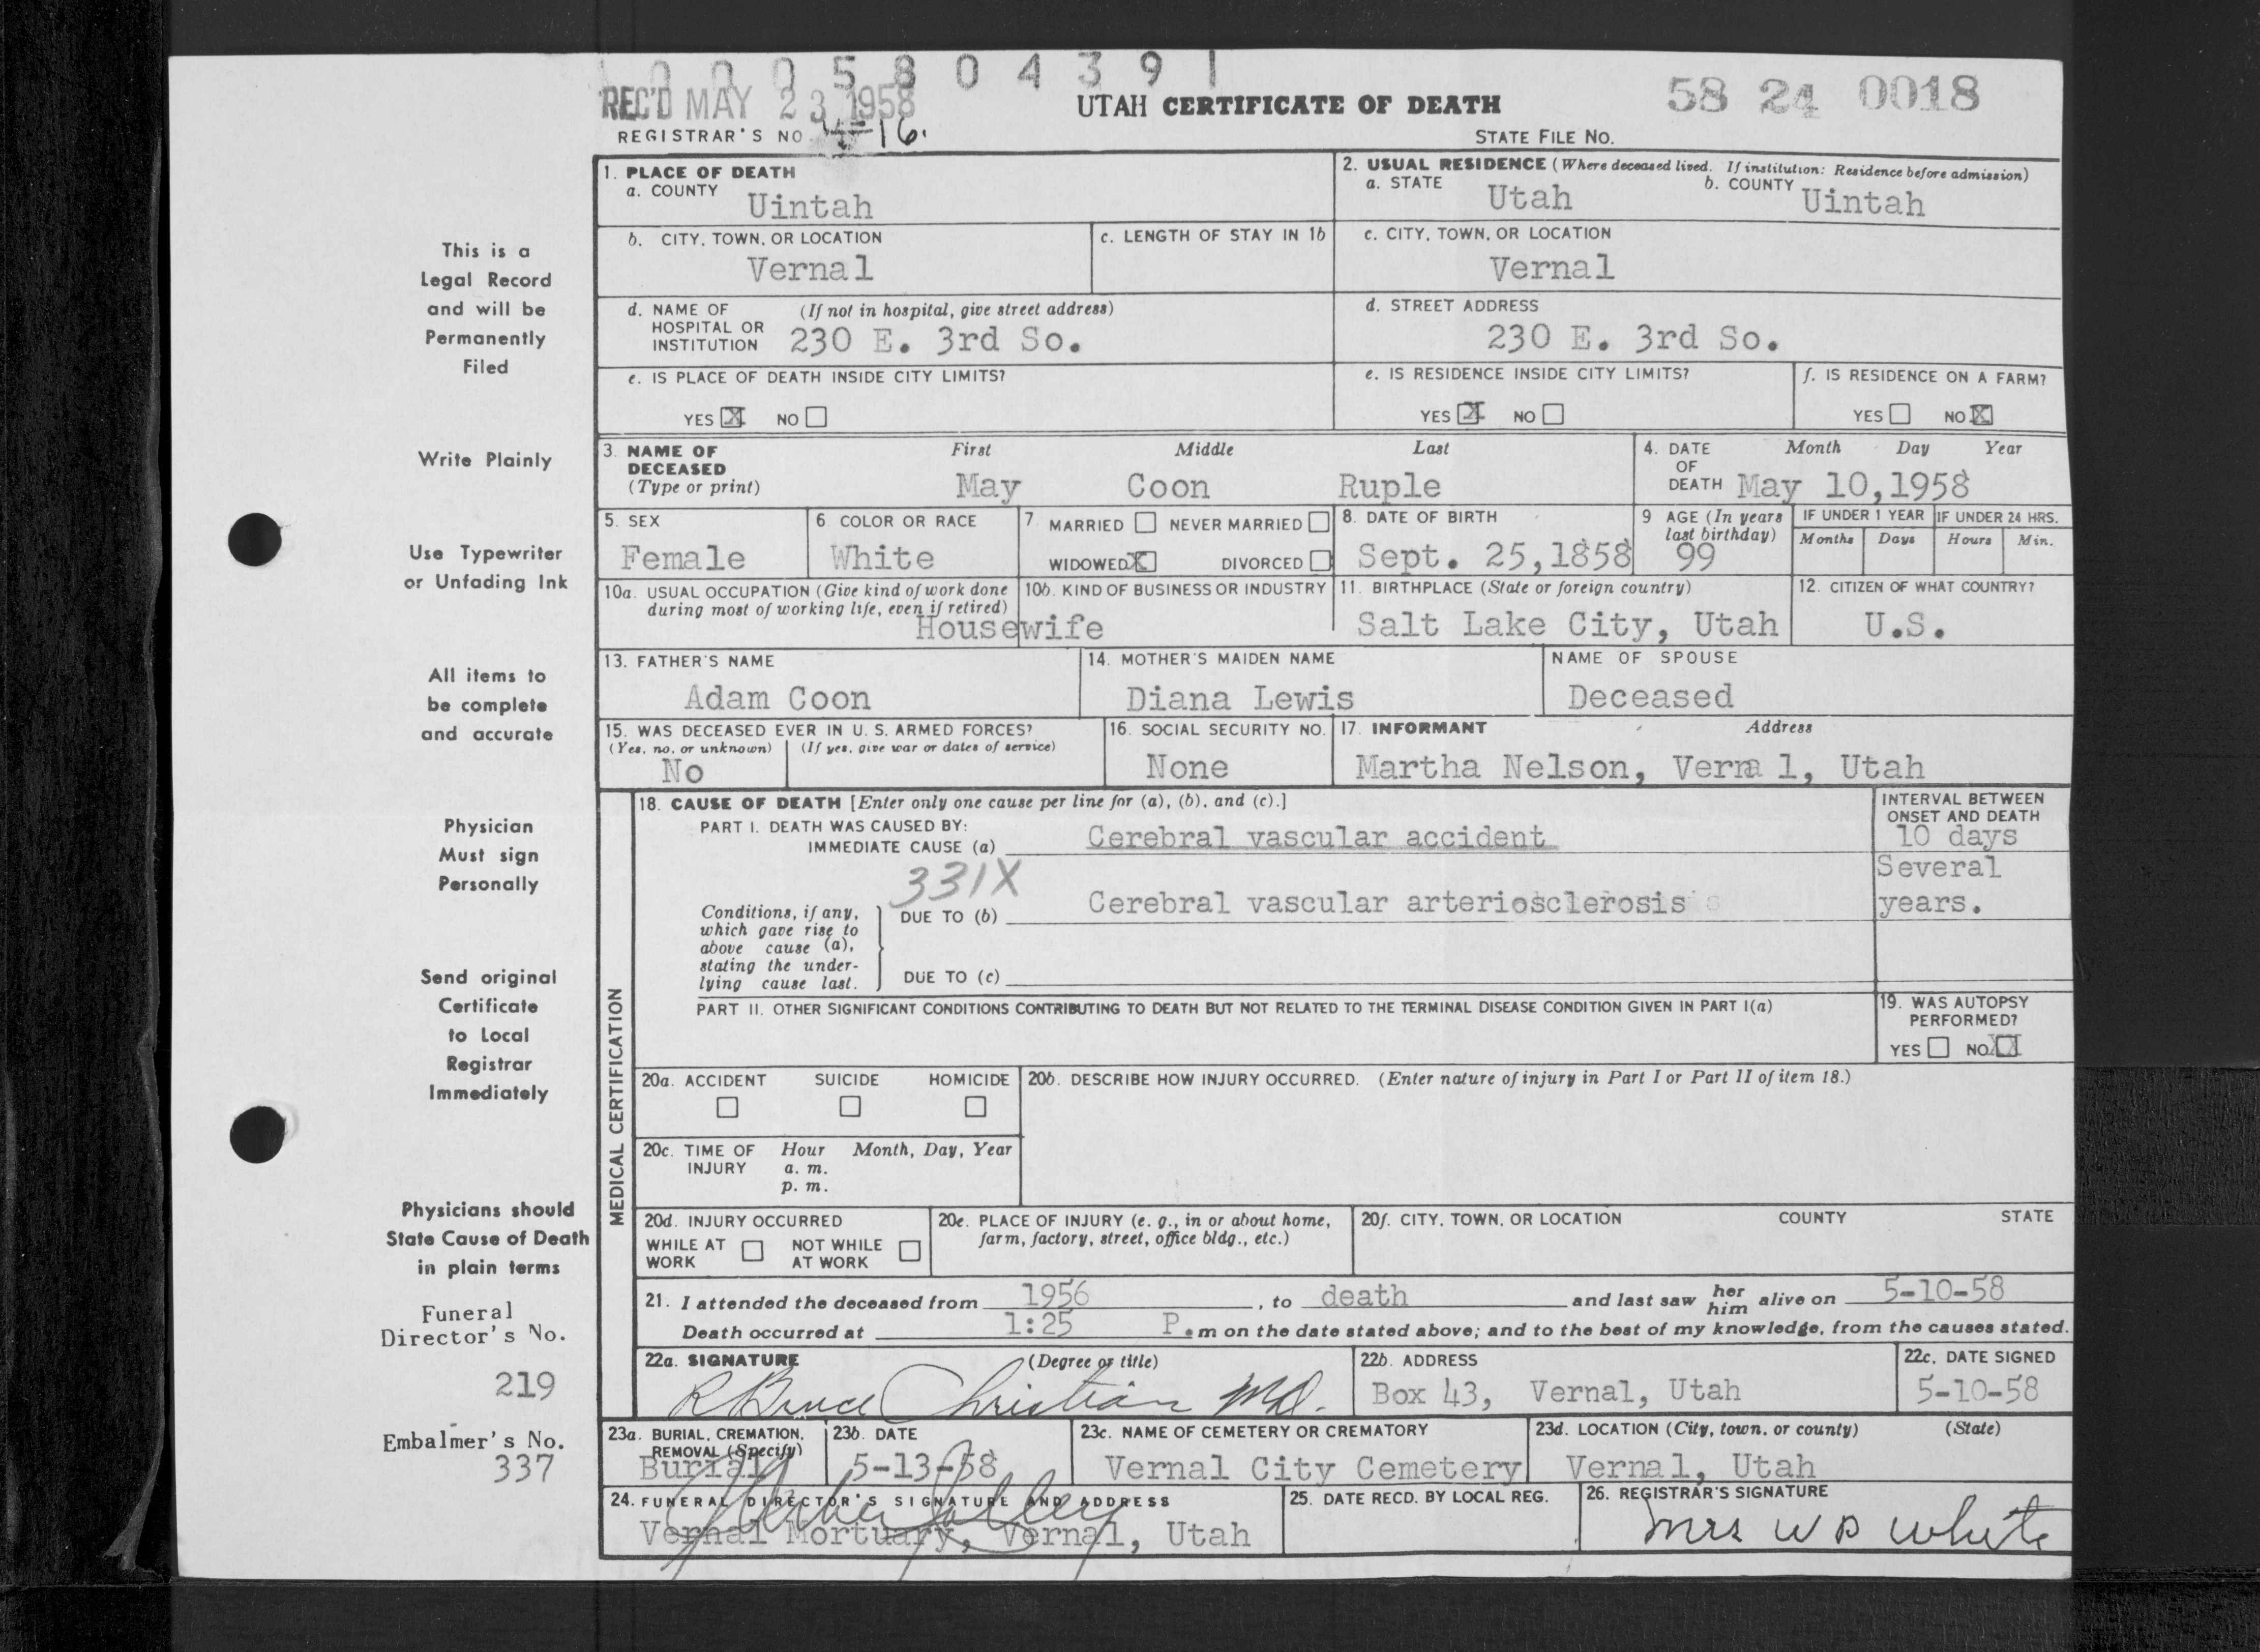 0 0 0 5 8 0 4 3 9 1
REC'D MAY 23 1958
UTAH CERTIFICATE OF DEATH
58 24 0018
REGISTRAR'S NO. 16.
STATE FILE NO.
1. PLACE OF DEATH
a. COUNTY Uintah
2. USUAL RESIDENCE (Where deceased lived. If institution: Residence before admission)
a. STATE Utah b. COUNTY Uintah
b. CITY, TOWN, OR LOCATION
Vernal
c. LENGTH OF STAY IN 1b
c. CITY, TOWN, OR LOCATION
Vernal
d. NAME OF HOSPITAL OR INSTITUTION (If not in hospital, give street address)
230 E. 3rd So.
d. STREET ADDRESS
230 E. 3rd So.
e. IS PLACE OF DEATH INSIDE CITY LIMITS?
YES X NO
e. IS RESIDENCE INSIDE CITY LIMITS?
YES X NO
f. IS RESIDENCE ON A FARM?
YES NO X
3. NAME OF DECEASED (Type or print)
First Middle Last
May Coon Ruple
4. DATE OF DEATH Month Day Year
May 10,1958
5. SEX
Female
6. COLOR OR RACE
White
7. MARRIED NEVER MARRIED
WIDOWED X DIVORCED
8. DATE OF BIRTH
Sept. 25,1858
9 AGE (In years last birthday)
99
IF UNDER 1 YEAR
Months Days
IF UNDER 24 HRS.
Hours Min.
10a. USUAL OCCUPATION (Give kind of work done during most of working life, even if retired)
10b. KIND OF BUSINESS OR INDUSTRY
Housewife
11. BIRTHPLACE (State or foreign country)
Salt Lake City, Utah
12. CITIZEN OF WHAT COUNTRY?
U.S.
13. FATHER'S NAME
Adam Coon
14. MOTHER'S MAIDEN NAME
Diana Lewis
NAME OF SPOUSE
Deceased
15. WAS DECEASED EVER IN U. S. ARMED FORCES?
(Yes, no, or unknown) (If yes, give war or dates of service)
No
16. SOCIAL SECURITY NO.
None
17. INFORMANT Address
Martha Nelson, Verna l, Utah
MEDICAL CERTIFICATION
18. CAUSE OF DEATH [Enter only one cause per line for (a), (b), and (c).]
PART I. DEATH WAS CAUSED BY:
IMMEDIATE CAUSE (a) Cerebral vascular accident
INTERVAL BETWEEN ONSET AND DEATH
10 days
331X
Conditions, if any, which gave rise to above cause (a), stating the underlying cause last.
DUE TO (b) Cerebral vascular arteriosclerosis
Several years.
DUE TO (c)
PART II. OTHER SIGNIFICANT CONDITIONS CONTRIBUTING TO DEATH BUT NOT RELATED TO THE TERMINAL DISEASE CONDITION GIVEN IN PART I(a)
19. WAS AUTOPSY PERFORMED?
YES NO X
20a. ACCIDENT SUICIDE HOMICIDE
20b. DESCRIBE HOW INJURY OCCURRED. (Enter nature of injury in Part I or Part II of item 18.)
20c. TIME OF INJURY Hour Month, Day, Year
a. m.
p. m.
20d. INJURY OCCURRED
WHILE AT WORK NOT WHILE AT WORK
20e. PLACE OF INJURY (e. g., in or about home, farm, factory, street, office bldg., etc.)
20f. CITY, TOWN, OR LOCATION COUNTY STATE
21. I attended the deceased from 1956, to death and last saw her him alive on 5-10-58
Death occurred at 1:25 P.m on the date stated above; and to the best of my knowledge, from the causes stated.
22a. SIGNATURE (Degree or title)
R Bruce Christian M.D.
22b. ADDRESS
Box 43, Vernal, Utah
22c. DATE SIGNED
5-10-58
23a. BURIAL, CREMATION, REMOVAL (Specify)
Burial
23b. DATE
5-13-58
23c. NAME OF CEMETERY OR CREMATORY
Vernal City Cemetery
23d. LOCATION (City, town, or county) (State)
Vernal, Utah
24. FUNERAL DIRECTOR'S SIGNATURE AND ADDRESS
Vernal Mortuary, Vernal, Utah
25. DATE RECD. BY LOCAL REG.
26. REGISTRAR'S SIGNATURE
Mrs W B White
This is a
Legal Record
and will be
Permanently
Filed
Write Plainly
Use Typewriter
or Unfading Ink
All items to
be complete
and accurate
Physician
Must sign
Personally
Send original
Certificate
to Local
Registrar
Immediately
Physicians should
State Cause of Death
in plain terms
Funeral
Director's No.
219
Embalmer's No.
337